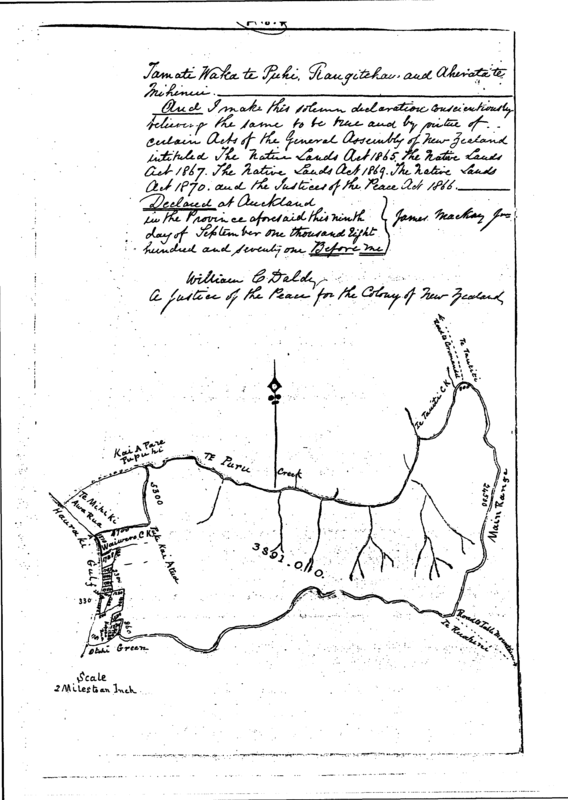 Tamati Waka te Puhi, Rangitehau. and Aherata te
Mihinui.
And I make this solemn declaration conscientiously
believing the same to be true and by virtue of
certain Acts of the General Assembly of New Zealand
intituled The Native Lands Act 1865 The Native Lands
Act 1867. The Native Lands Act 1869. The Native Lands
Act 1870. and the Justices of the Peace Act 1866.
Declared at Auckland
in the Province aforesaid this ninth
day of September one thousand Eight
hundred and seventy one Before me
James Mackay Jnr
William C Daldy
A Justice of the Peace for the Colony of New Zealand
Te Tauiti C.K
Kai A Pare
Pupuhi
TE PURU
Creek
5300
Te Mihi Ki
Awa Rua
Hauraki
Gulf
Waiwera C.K
Main Range
3891.0.0.
330
Otuhi Green
Te Ruahine
Scale
2 Miles to an Inch.